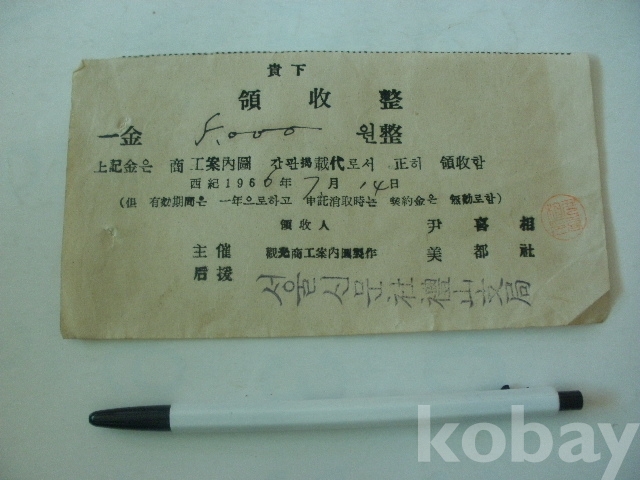 貴下
領收整
一金 5,000 원整
上記金은 商工案內圖 간판揭載代로서 正히 領收함
西紀 1966年 7月 14日
(但 有効期間은 一年으로하고 申託消取時는 契約金은 無効로함)
領收人 尹喜相
主催 觀光商工案內圖製作 美都社
后援 서울신문社禮山支局
kobay